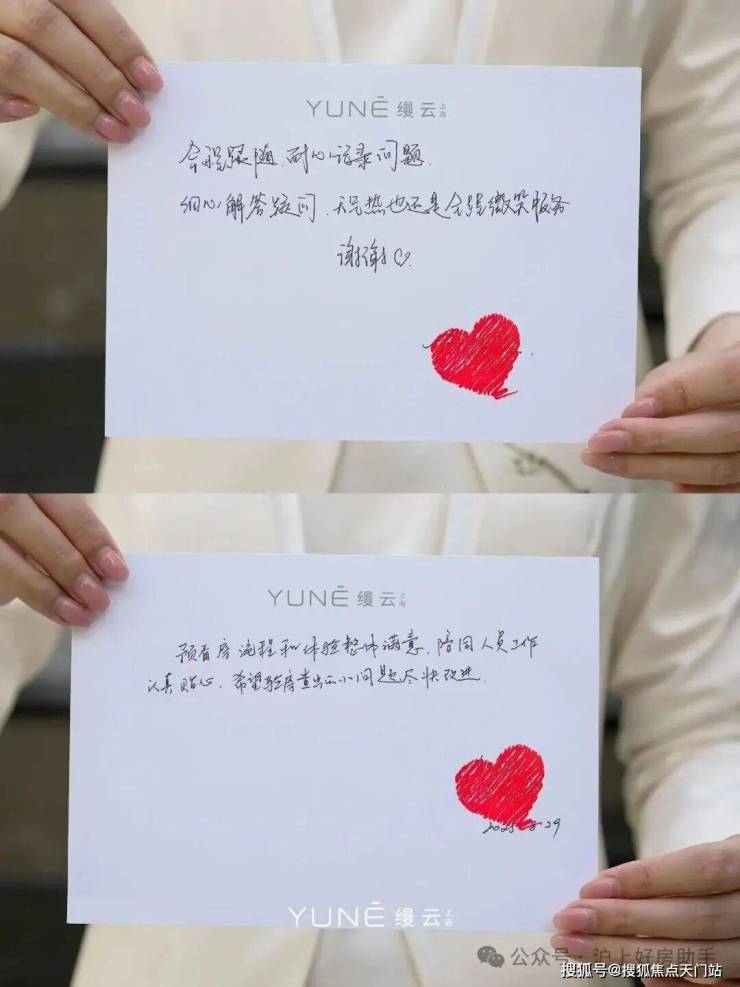 YUNÉ 缦云 上海
全程跟随,耐心记录问题.
细心解答疑问,天气热也还是全程微笑服务
谢谢♡.
YUNÉ 缦云 上海
预看房流程和体验整体满意,陪同人员工作
认真贴心,希望验房查出的小问题尽快改进.
2025-8-29
YUNÉ 缦云 上海
公众号·沪上好房助手
搜狐号@搜狐焦点天门站